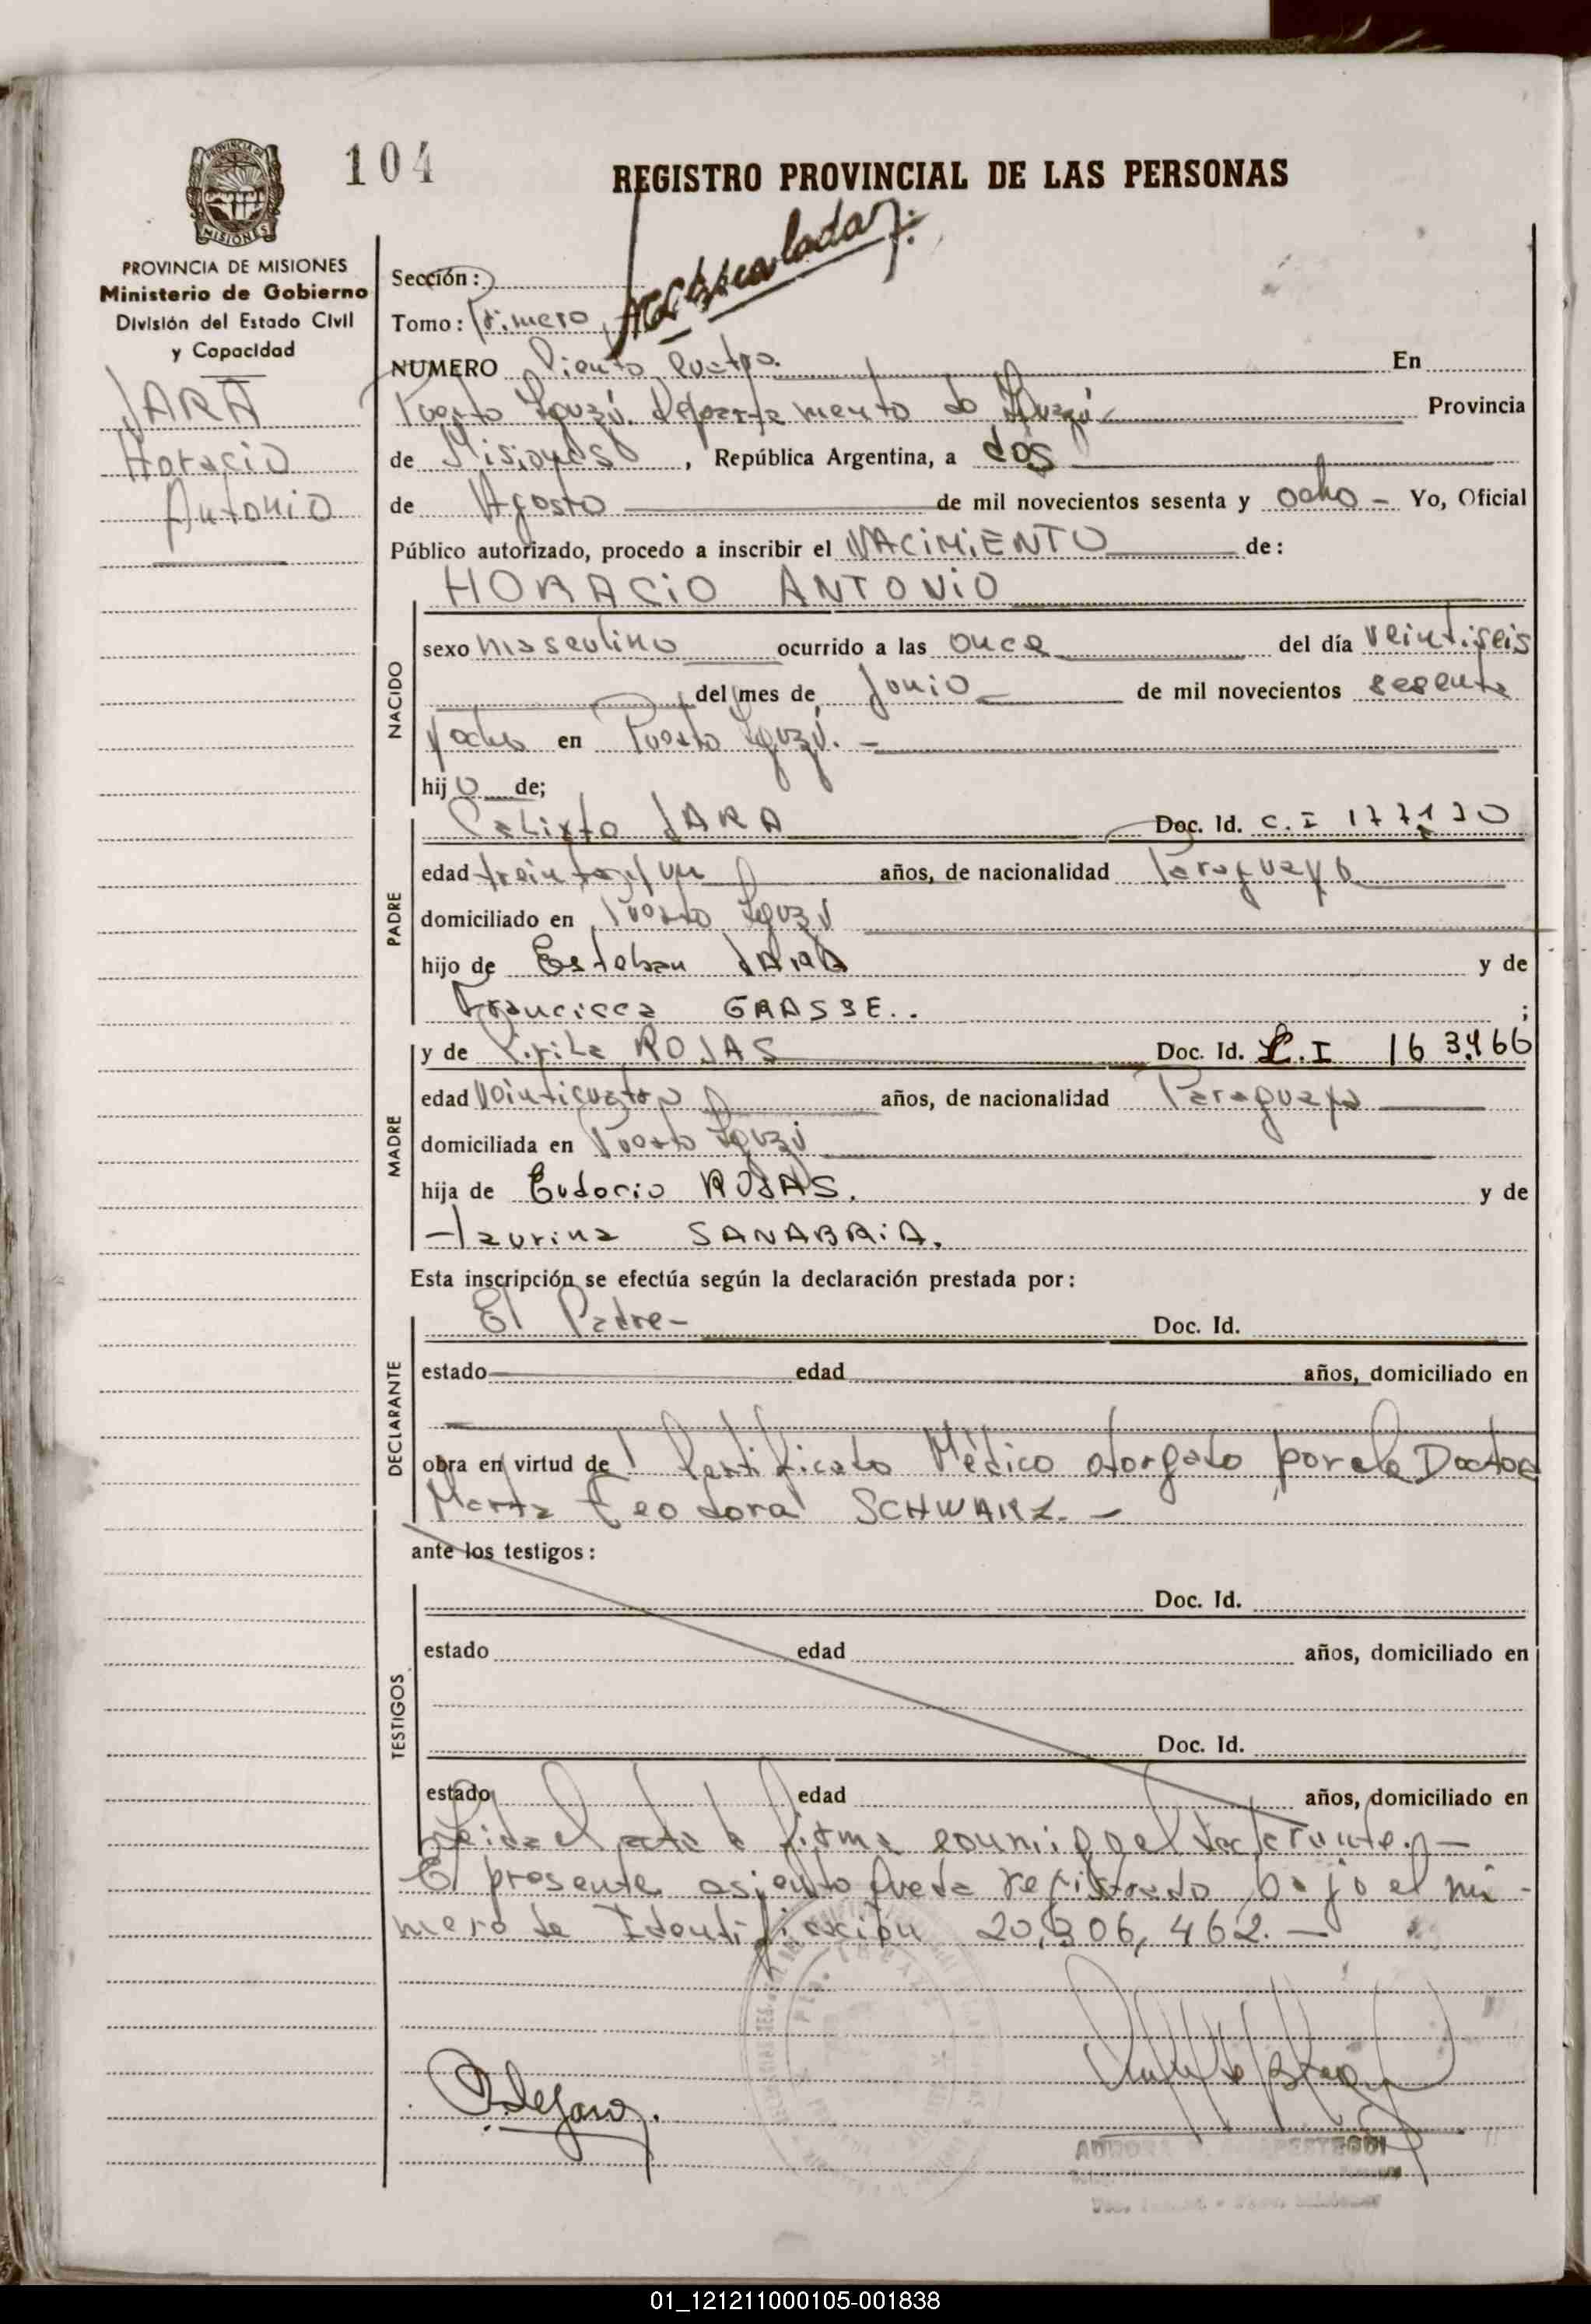 104
REGISTRO PROVINCIAL DE LAS PERSONAS
PROVINCIA DE MISIONES
Ministerio de Gobierno
División del Estado Civil
y Capacidad
JARA
Horacio
Antonio
Sección:
Tomo: Primero
NUMERO Ciento Cuatro. En
Puerto Iguazú. Departamento de Iguazú Provincia
de Misiones, República Argentina, a dos
de Agosto de mil novecientos sesenta y ocho - Yo, Oficial
Público autorizado, procedo a inscribir el NACIMIENTO de:
HORACIO ANTONIO
NACIDO
sexo masculino ocurrido a las once del día veintiseis
del mes de Junio de mil novecientos sesenta
y ocho en Puerto Iguazú. -
hijo de;
PADRE
Calixto JARA Doc. Id. C. I
edad treinta y un años, de nacionalidad Paraguaya
domiciliado en Puerto Iguazú
hijo de Esteban JARA y de
Francisca GRASSE.. ;
MADRE
y de Cirila ROJAS Doc. Id. C.I 163.466
edad veinticuatro años, de nacionalidad Paraguaya
domiciliada en Puerto Iguazú
hija de Eudocio ROJAS. y de
Taurina SANABRIA.
Esta inscripción se efectúa según la declaración prestada por:
DECLARANTE
El Padre- Doc. Id.
estado edad años, domiciliado en
obra en virtud de Certificado Médico otorgado por la Doctora
Marta Teodora SCHWARZ. -
ante los testigos:
TESTIGOS
Doc. Id.
estado edad años, domiciliado en
Doc. Id.
estado edad años, domiciliado en
Leida el acta la firma conmigo el declarante. -
El presente asiento queda registrado bajo el nú-
mero de Identificación 20,306,462. -
01_121211000105-001838